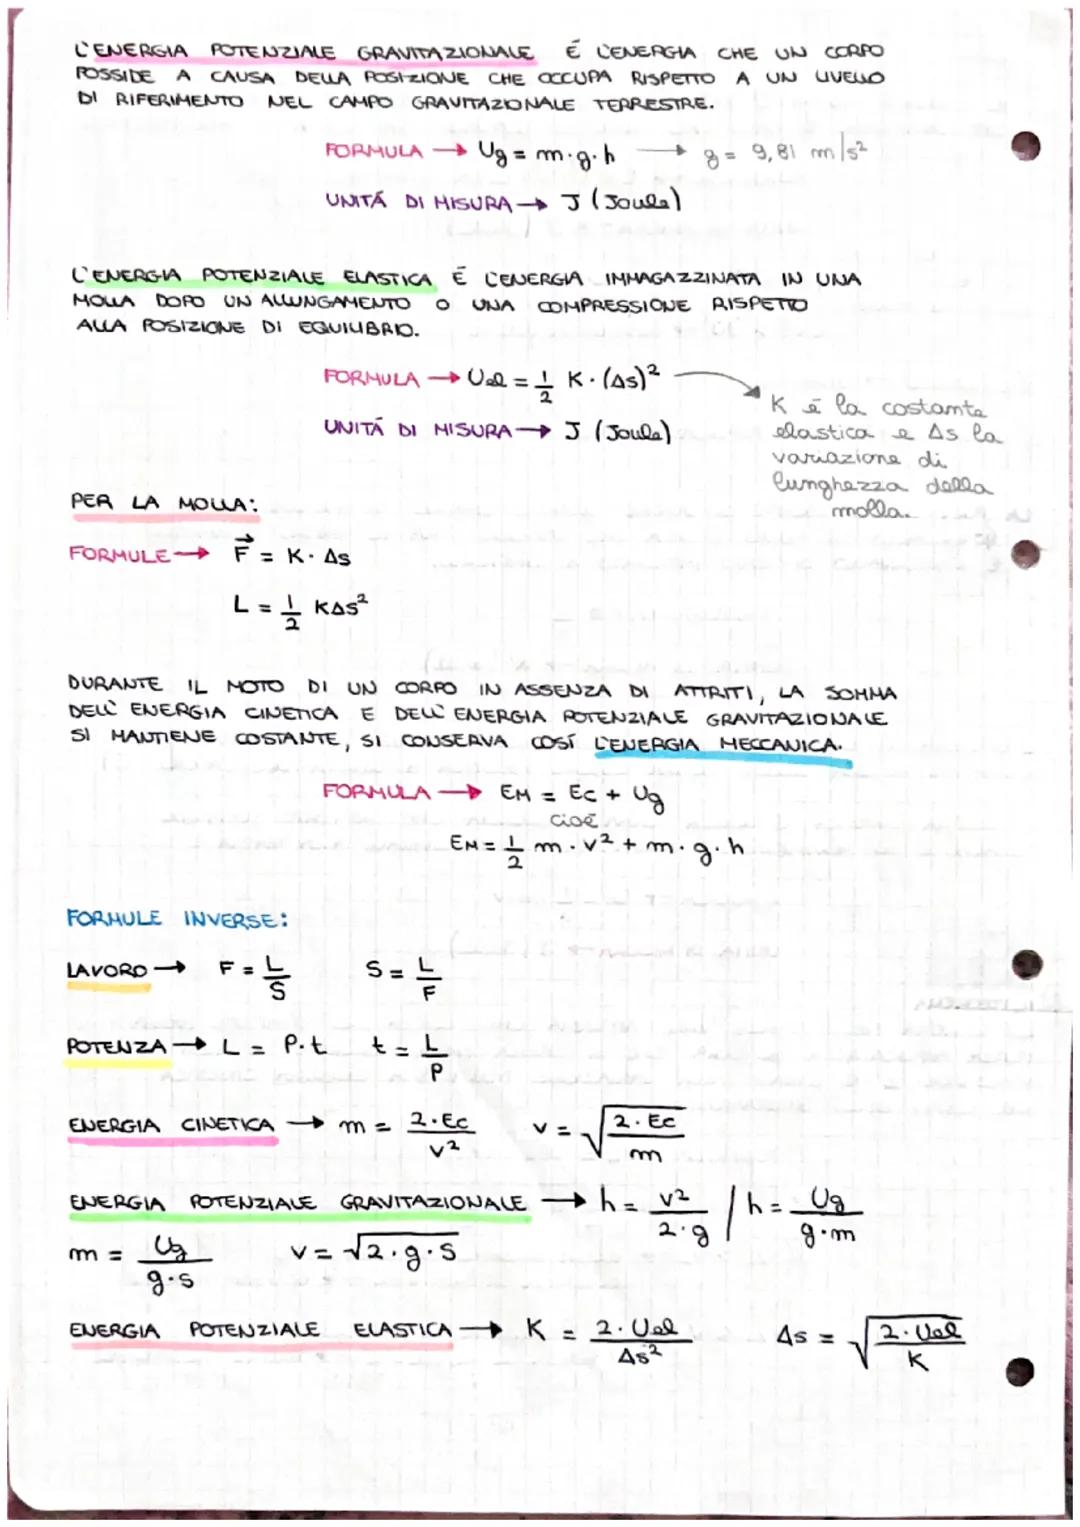 L'ENERGIA POTENZIALE GRAVITAZIONALE É L'ENERGIA CHE UN CORPO
POSSIDE A CAUSA DELLA POSIZIONE CHE OCCUPA RISPETTO A UN LIVELLO
DI RIFERIMENTO NEL CAMPO GRAVITAZIONALE TERRESTRE.
FORMULA → Ug = m·g·h → g = 9,81 m/s²
UNITÁ DI MISURA → J (Joule)
L'ENERGIA POTENZIALE ELASTICA É L'ENERGIA IMMAGAZZINATA IN UNA
MOLLA DOPO UN ALLUNGAMENTO O UNA COMPRESSIONE RISPETTO
ALLA POSIZIONE DI EQUILIBRIO.
FORMULA → Uel = 1/2 K·(Δs)²
UNITÁ DI MISURA → J (Joule)
K é la costante
elastica e Δs la
variazione di
lunghezza della
molla.
PER LA MOLLA:
FORMULE → F⃗ = K·Δs
L = 1/2 KΔs²
DURANTE IL MOTO DI UN CORPO IN ASSENZA DI ATTRITI, LA SOMMA
DELL'ENERGIA CINETICA E DELL'ENERGIA POTENZIALE GRAVITAZIONALE
SI MANTIENE COSTANTE, SI CONSERVA COSÍ L'ENERGIA MECCANICA.
FORMULA → EM = Ec + Ug
cioé
EM = 1/2 m·v² + m·g·h
FORMULE INVERSE:
LAVORO → F = L/S S = L/F
POTENZA → L = P·t t = L/P
ENERGIA CINETICA → m = 2·Ec/v² v = √(2·Ec/m)
ENERGIA POTENZIALE GRAVITAZIONALE → h = v²/2·g / h = Ug/g·m
m = Ug/g·s v = √2·g·s
ENERGIA POTENZIALE ELASTICA → K = 2·Uel/Δs² Δs = √(2·Uel/K)